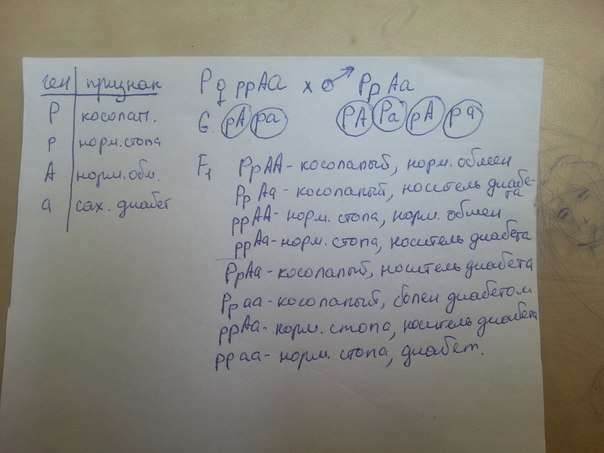 ген признак
P косолап.
p норм. стопа
A норм. обм.
a сах. диабет
P ♀ ppAa x ♂ Pp Aa
G. pA pa PA Pa pA pa
F1 PpAA - косолапый, норм. обмен
PpAa - косолапый, носитель диабе-
та
ppAA - норм. стопа, норм. обмен
ppAa - норм. стопа, носитель диабета
PpAa - косолапый, носитель диабета
Ppaa - косолапый, болен диабетом
ppAa - норм. стопа, носитель диабета
ppaa - норм. стопа, диабет.